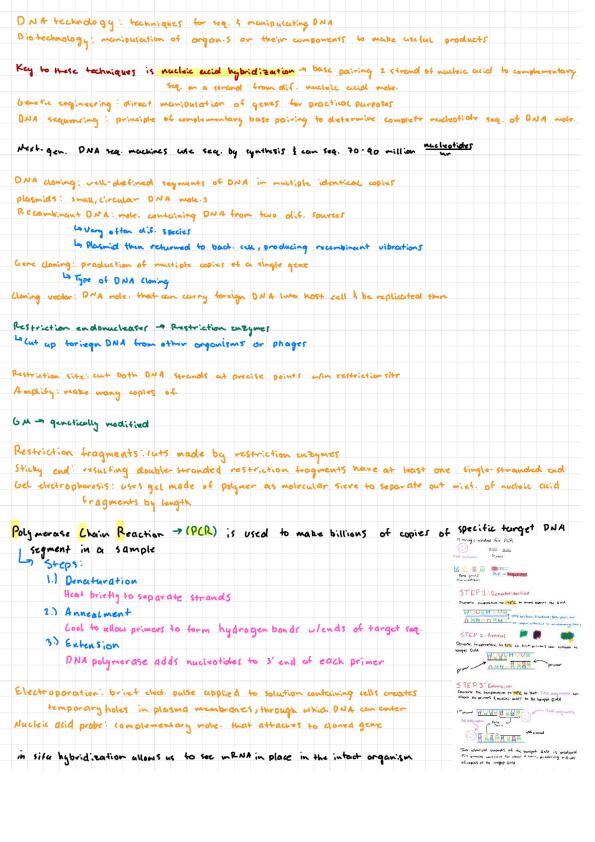 DNA technology: techniques for seq. & manipulating DNA
Biotechnology: manipulation of organ.s or their components to make useful products
Key to these techniques is nucleic acid hybridization → base pairing 1 strand of nucleic acid to complementary
seq. on a strand from dif. nucleic acid mole.
Genetic engineering: direct manipulation of genes for practical purposes
DNA sequencing: principle of complementary base pairing to determine complete nucleotide seq. of DNA mole.
Next-gen. DNA seq. machines use seq. by synthesis & can seq. 70-90 million nucleotides/hr
DNA cloning: well-defined segments of DNA in multiple identical copies
plasmids: small, circular DNA mole.s
Recombinant DNA: mole. containing DNA from two dif. sources
↳ Very often dif. species
↳ Plasmid then returned to bact. cell, producing recombinant vibrations
Gene cloning: production of multiple copies of a single gene
↳ Type of DNA cloning
Cloning vector: DNA mole. that can carry foreign DNA into host cell & be replicated then
Restriction endonucleases → Restriction enzymes
↳ Cut up foriegn DNA from other organisms or phages
Restriction site: cut both DNA strands at precise points w/in restriction site
Amplify: make many copies of
GM → genetically modified
Restriction fragments: cuts made by restriction enzymes
Sticky end: resulting double-stranded restriction fragments have at least one single-stranded end
Gel electrophoresis: uses gel made of polymer as molecular sieve to separate out mixt. of nucleic acid
fragments by length
Polymerase Chain Reaction → (PCR) is used to make billions of copies of specific target DNA
segment in a sample
↳ Steps:
1.) Denaturation
Heat briefly to separate strands
2.) Annealment
Cool to allow primers to form hydrogen bonds w/ends of target seq.
3.) Extension
DNA polymerase adds nucleotides to 3' end of each primer
STEP 1: Denaturation
STEP 2: Anneal
STEP 3: Extension
Electroporation: brief elect. pulse applied to solution containing cells creates
temporary holes in plasma membranes, through which DNA can enter
Nucleic acid probe: complementary mole. that attaches to cloned gene
in situ hybridization allows us to see mRNA in place in the intact organism